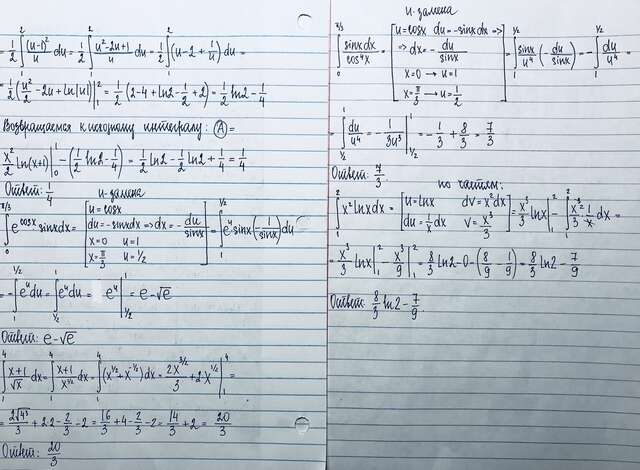 = 1/2 ∫₁² (u-1)²/u du = 1/2 ∫₁² (u²-2u+1)/u du = 1/2 ∫₁² (u-2+1/u) du =
= 1/2 (u²/2 - 2u + ln|u|)|₁² = 1/2 (2-4+ln2-1/2+2) = 1/2 ln2 - 1/4
Возвращаемся к исходному интегралу: Ⓐ =
x²/2 ln(x+1)|₀¹ - (1/2 ln2 - 1/4) = 1/2 ln2 - 1/2 ln2 + 1/4 = 1/4
Ответ: 1/4
u-замена
∫₀^(π/3) e^(cosx) sinxdx = [u=cosx
du=-sinxdx ⇒ dx = -du/sinx
x=0 u=1
x=π/3 u=1/2] = ∫₁^(1/2) e^u sinx(-1/sinx)du
= -∫₁^(1/2) e^u du = ∫_(1/2)^1 e^u du = e^u|_(1/2)^1 = e-√e
Ответ: e-√e
∫₁⁴ (x+1)/√x dx = ∫₁⁴ (x+1)/x^(1/2) dx = ∫₁⁴ (x^(1/2)+x^(-1/2))dx = 2x^(3/2)/3 + 2x^(1/2)|₁⁴ =
= 2√4³/3 + 2·2 - 2/3 - 2 = 16/3 + 4 - 2/3 - 2 = 14/3 + 2 = 20/3
Ответ: 20/3
u-замена
∫₀^(π/3) sinxdx/cos⁴x = [u=cosx du=-sinxdx ⇒
⇒ dx = -du/sinx
x=0 → u=1
x=π/3 → u=1/2] = ∫₁^(1/2) sinx/u⁴ (-du/sinx) = -∫₁^(1/2) du/u⁴
= ∫_(1/2)^1 du/u⁴ = -1/3u³|_(1/2)^1 = -1/3 + 8/3 = 7/3
Ответ: 7/3.
по частям:
∫₁² x² lnxdx = [u=lnx dv=x²dx
du=1/x dx v=x³/3] = x³/3 lnx|₁² - ∫₁² x³/3 · 1/x dx =
= x³/3 lnx|₁² - x³/9|₁² = 8/3 ln2 - 0 - (8/9 - 1/9) = 8/3 ln2 - 7/9
Ответ: 8/3 ln2 - 7/9.